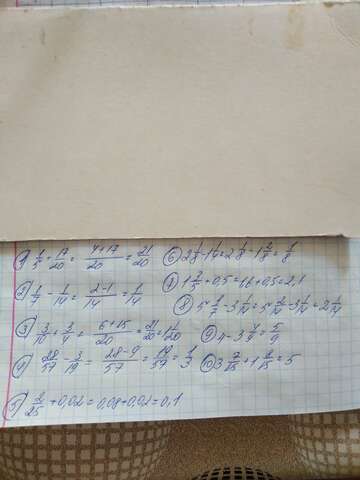 1) 1/5 + 17/20 = (4+17)/20 = 21/20
2) 1/7 - 1/14 = (2-1)/14 = 1/14
3) 3/10 + 3/4 = (6+15)/20 = 21/20 = 1 1/20
4) 28/57 - 3/19 = (28-9)/57 = 19/57 = 1/3
5) 2/25 + 0,02 = 0,08 + 0,02 = 0,1
6) 2 1/8 - 1 1/4 = 2 1/8 - 1 2/8 =
7) + 0,5 = 1,6 + 0,5 = 2,1
8) 5 1/7 - 3 1/14 = 5 2/14 - 3 1/14 = 2 1/14
9) 4 - 3 4/9 = 5/9
10) 3 7/15 + 1 8/15 = 5